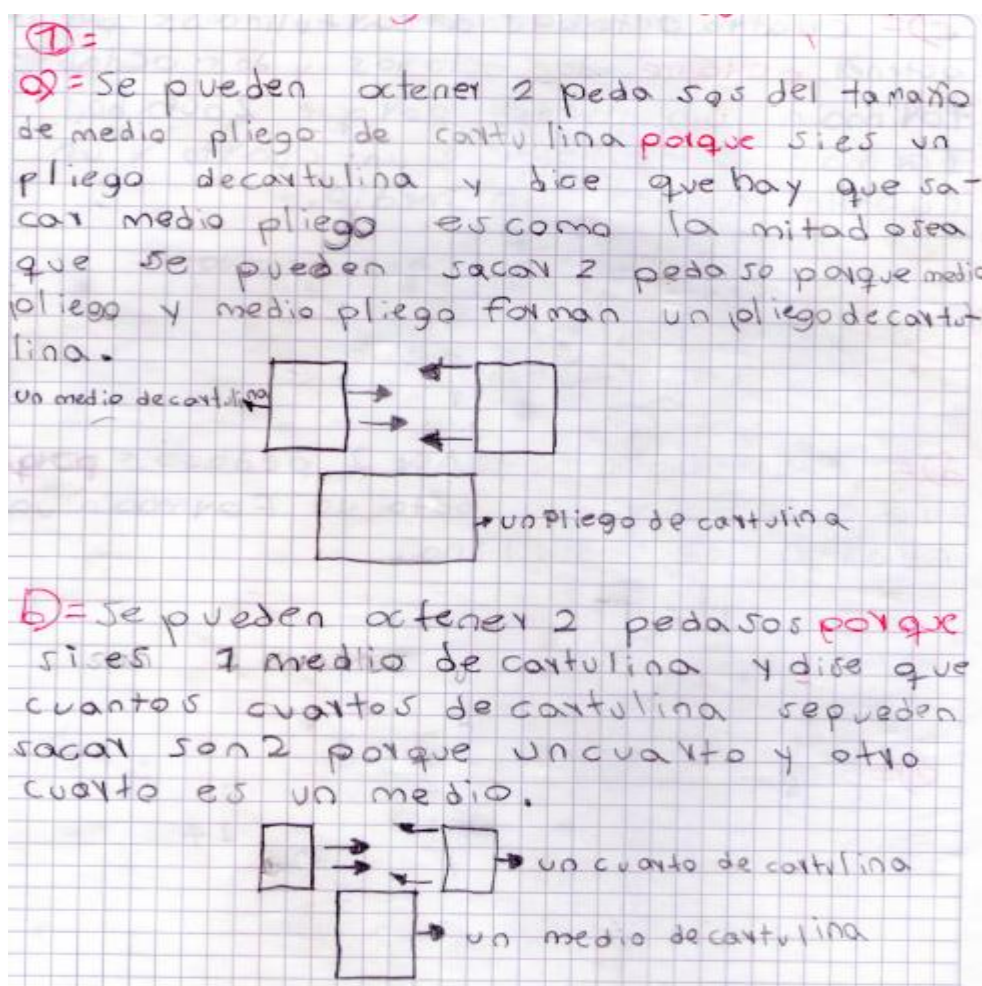 1=
a)= se pueden octener 2 peda sos del tamaño
de medio pliego de cartulina porque sies un
pliego decartulina y dice que hay que sa-
car medio pliego es como la mitad osea
que se pueden sacar 2 peda so porque medio
pliego y medio pliego forman un pliego decartu-
lina.
un medio decartulina
un pliego de cartulina
b)= se pueden octener 2 pedasos porque
sises 1 medio de cartulina y dise que
cuantos cuartos de cartulina sepueden
sacar son 2 porque un cuarto y otro
cuarto es un medio.
un cuarto de cartulina
un medio decartulina